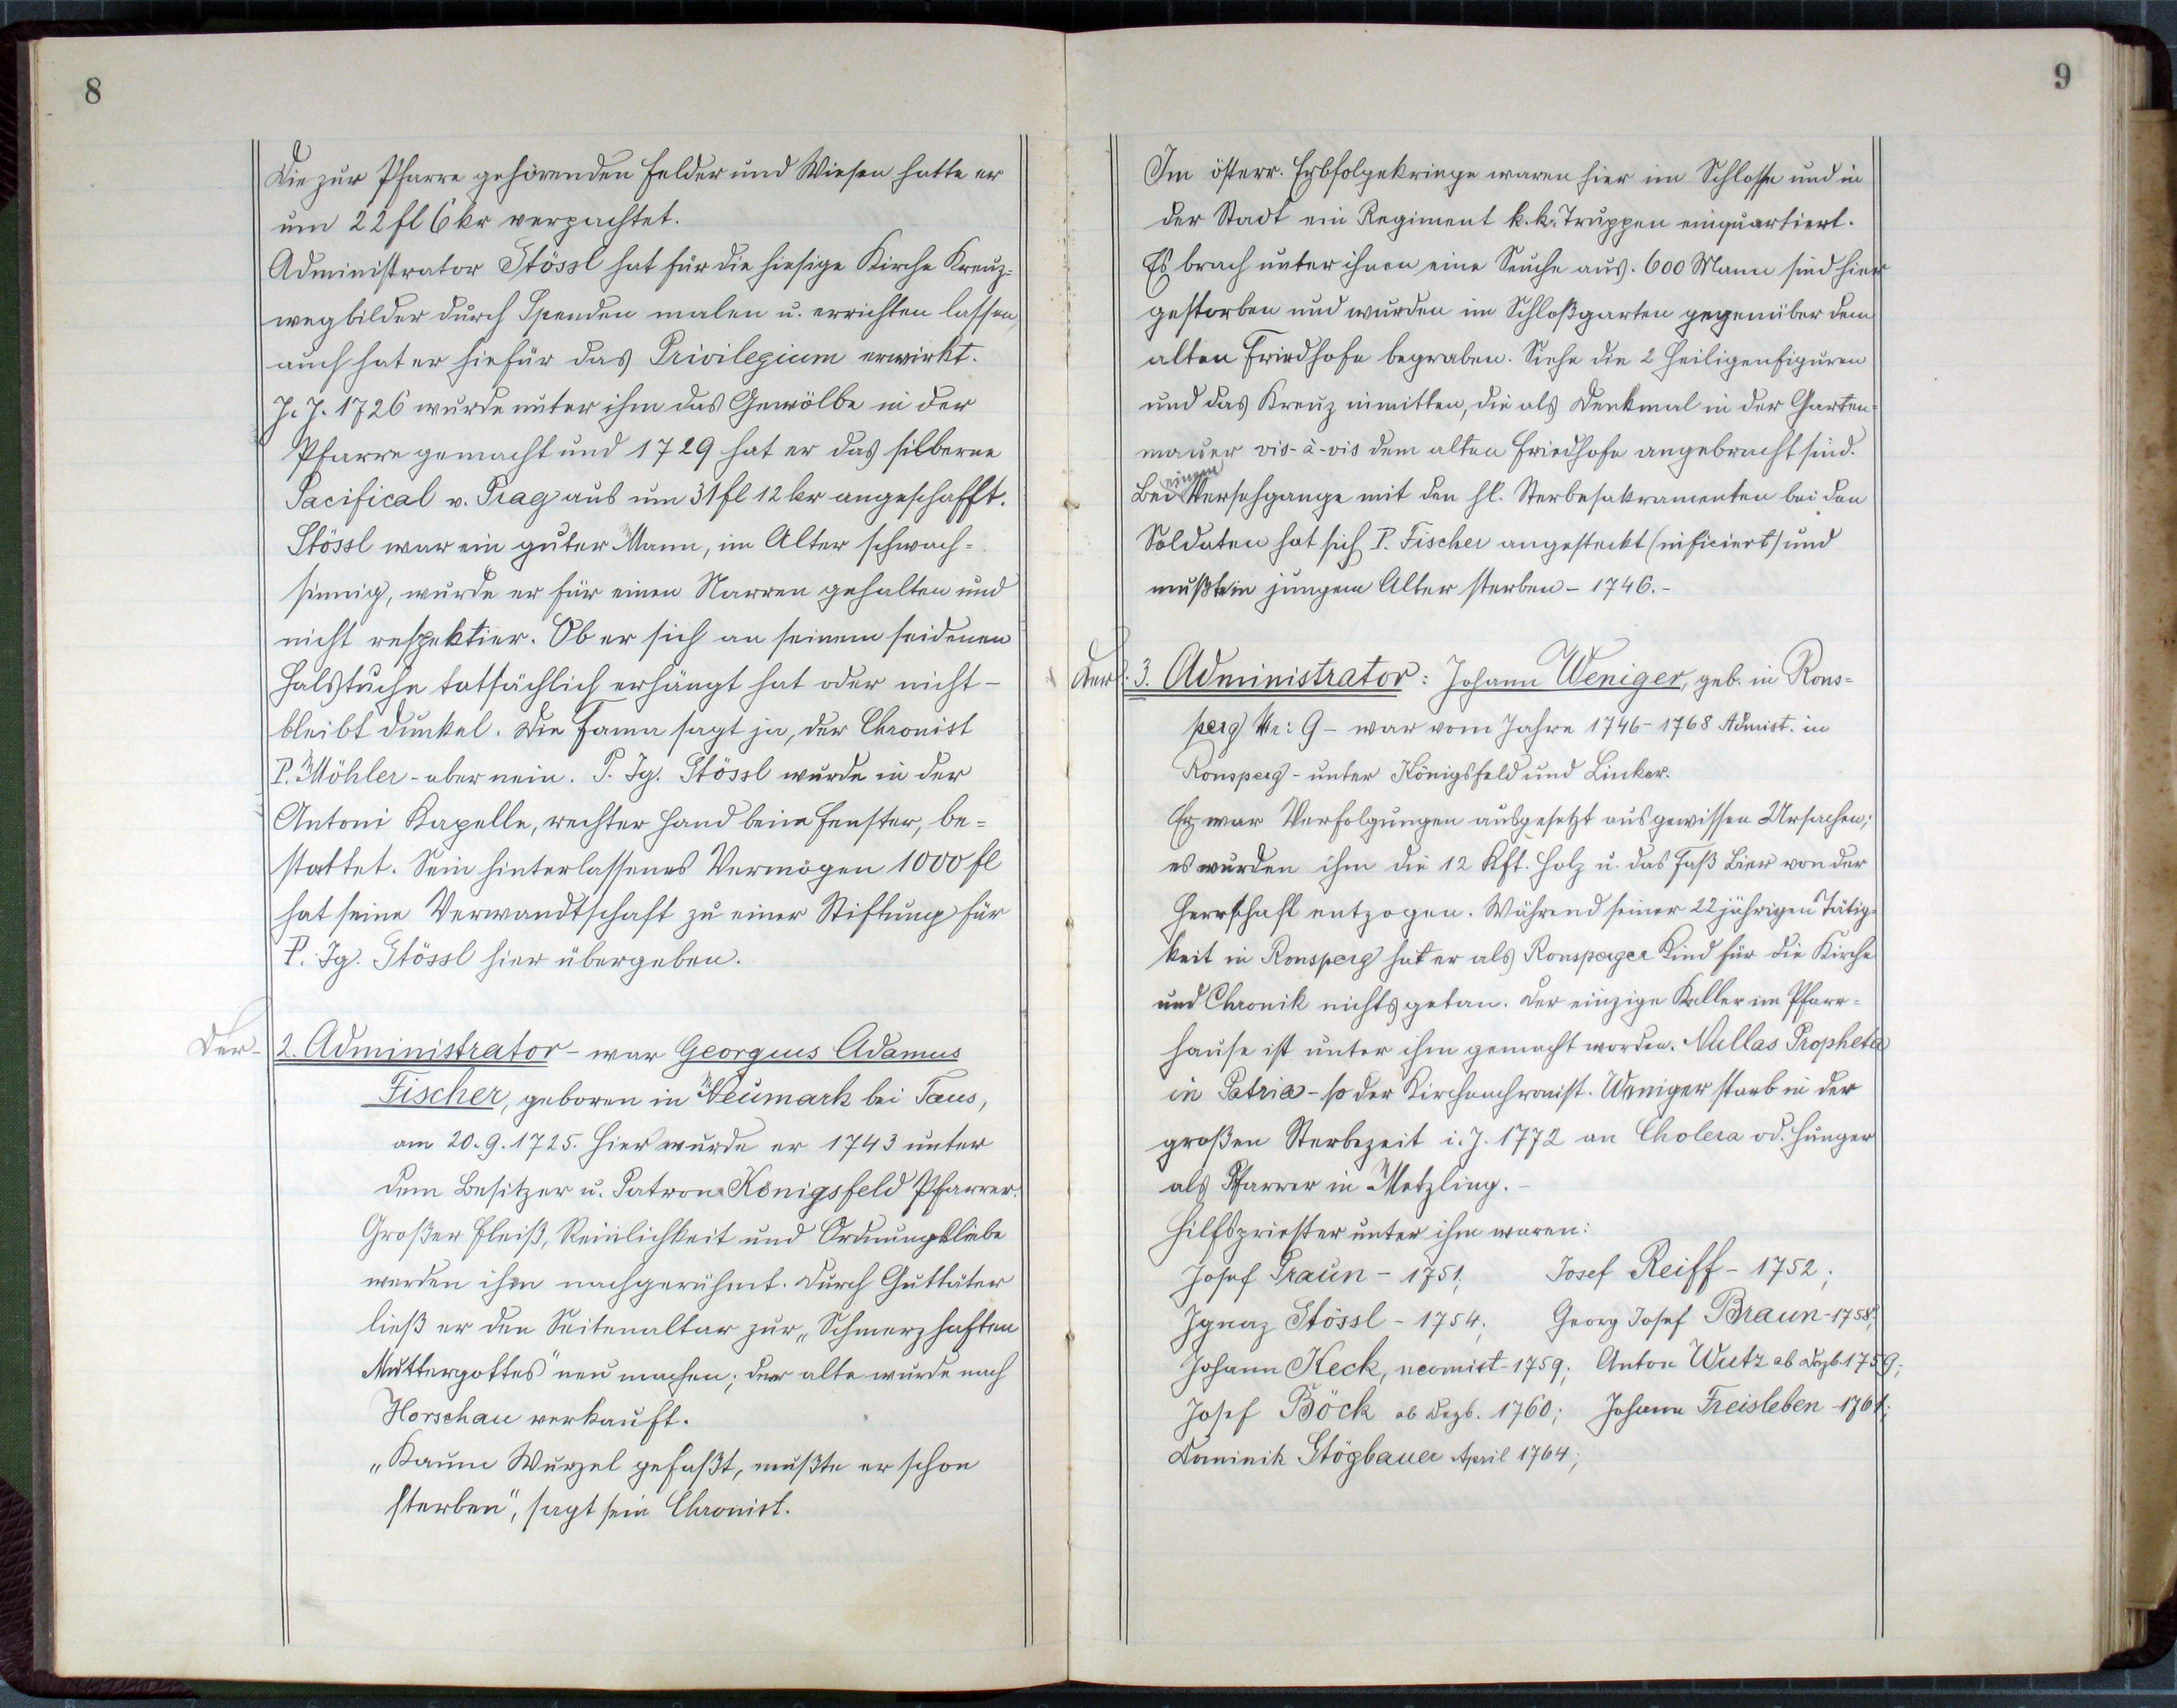 8
Die zur Pfarre gehörenden Felder und Wiesen hatte er
um 22 fl 6 kr verpachtet.
Administrator Stössl hat für die hiesige Kirche Kreuz=
wegbilder durch Spenden malen u. errichten lassen,
auch hat er hiefür das Privilegium erwirkt.
J. J. 1726 wurde unter ihm das Gewölbe in der
Pfarre gemacht und 1729 hat er das silberne
Pacifical v. Prag aus um 31 fl 12 kr angeschafft.
Stössl war ein guter Mann, im Alter schwach=
sinnig, wurde er für einen Narren gehalten und
nicht respektier. Ob er sich an seinem seidenen
Halstuche tatsächlich erhängt hat oder nicht –
bleibt dunkel. Die Fama sagt ja, der Chronist
P. Möhler - aber nein. P. Ig. Stössl wurde in der
Antoni Kapelle, rechter Hand beim Fenster, be=
stattet. Sein hinterlassenes Vermögen 1000 fl
hat seine Verwandtschaft zu einer Stiftung für
P. Ig. Stössl hier übergeben.
Der - 2. Administrator - war Georgius Adamus
Fischer, geboren in Neumark bei Taus,
am 20.9.1725. Hier wurde er 1743 unter
dem Besitzer u. Patron Königsfeld Pfarrer.
Großer Fleiß, Reinlichkeit und Ordnungsliebe
werden ihm nachgerühmt. Durch Guttäter
ließ er den Seitenaltar zur „Schmerzhaften
Muttergottes" neu machen; der alte wurde nach
Horschau verkauft.
„Kaum Wurzel gefaßt, mußte er schon
sterben", sagt sein Chronist.
9
Im österr. Erbfolgekriege waren hier im Schlosse und in
der Stadt ein Regiment k. k. Truppen einquartiert.
Es brach unter ihnen eine Seuche aus. 600 Mann sind hier
gestorben und wurden im Schloßgarten gegenüber dem
alten Friedhofe begraben. Siehe die 2 Heiligenfiguren
und das Kreuz inmitten, die als Denkmal in der Garten=
mauer vis-à-vis dem alten Friedhofe angebracht sind.
Bei einem Versehgange mit den hl. Sterbesakramenten bei den
Soldaten hat sich P. Fischer angesteckt (inficiert) und
mußte in jungem Alter sterben – 1746. –
Der 3. Administrator: Johann Weniger, geb. in Rons=
perg Nr: 9 – war vom Jahre 1746 – 1768 Admist. in
Ronsperg - unter Königsfeld und Linker.
Er war Verfolgungen ausgesetzt aus gewissen Ursachen;
es wurden ihm die 12 Kft. Holz u. das Faß Bier von der
Herrschaft entzogen. Während seiner 22 jährigen Tätig=
keit in Ronsperg hat er als Ronsperger Kind für die Kirche
und Chronik nichts getan. Der einzige Keller im Pfarr=
hause ist unter ihm gemacht worden. Nullas Propheta
in Patria - so der Kirchenchronist. Weniger starb in der
großen Sterbezeit i. J. 1772 an Cholera od. Hunger
als Pfarrer in Metzling. –
Hilfspriester unter ihm waren:
Josef Praun – 1751; Josef Reiff – 1752;
Ignaz Stössl – 1754; Georg Josef Braun – 1758;
Johann Keck, neomist – 1759; Anton Wutz ab Dezb. 1759;
Josef Böck ab Dezb. 1760; Johann Freisleben – 1761;
Dominik Stögbauer April 1764;